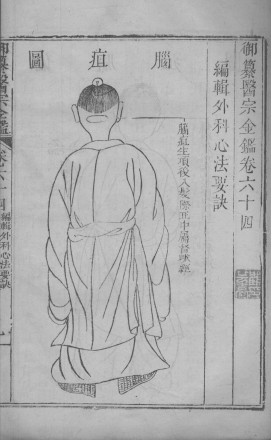 御纂醫宗全鑑卷六十四
編輯外科心法要訣
腦疽圖
腦疽生項後入髮際正中屬督脈經
御纂醫宗金鑑
卷六十四
編輯外科心法要訣